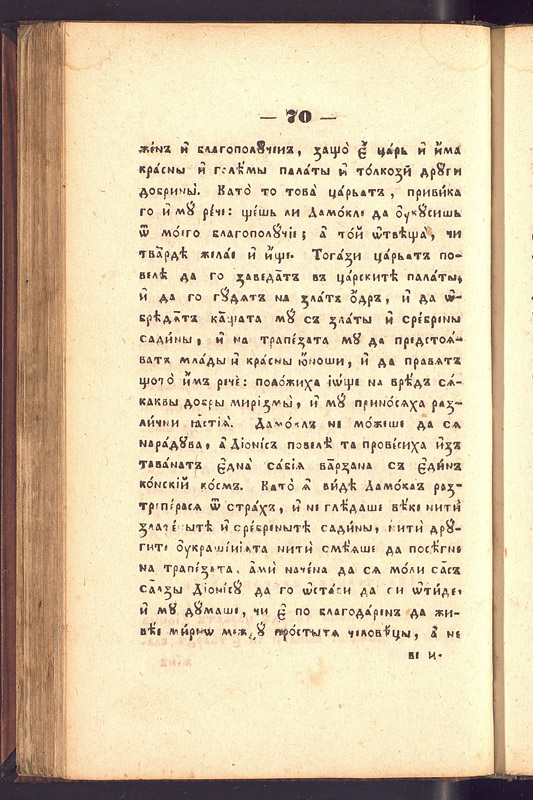 — 70 —
же́нъ и҆ благополꙋ́ченъ, защо̀ є҆̀ ца́рь и҆ и҆́ма
кра́сны и҆ голѣ́мы пала́ты и҆ то́лкози дрꙋ́ги
добрины̀. Като̀ то това̀ ца́рьатъ, приви́ка
го и҆ мꙋ̀ ре́че: ще́шь ли Дамо́кле да ᲂу҆кꙋ́сишь
ѿ мо́его благополꙋ́чїе; а҆ то́й ѿвѣща̀, чи
тва́рдѣ жела́е и҆ и҆́ще. Тога́зи ца́рьатъ по-
велѣ̀ да го заведа́тъ въ ца́рскитѣ пала́ты,
и҆ да го гꙋдѧ́тъ на зла́тъ ѻ҆́дръ, и҆ да ѡ҆-
брѣдѧ́тъ ка́щата мꙋ̀ съ зла́ты и҆ сре́брены
сади́ны, и҆ на трапе́зата мꙋ да предстоѧ́-
ватъ мла́ды и҆ кра́сны ю҆́ноши, и҆ да пра́вѧтъ
щото̀ и҆́мъ речѐ: положи́ха і҆ѡ́ще на врѣ́дъ сѧ́-
каквы до́бры мири́змы, и҆ мꙋ̀ прино́сѧха раз-
ли́чни ꙗ҆́стїѧ. Дамо́клъ не мо́жеше да сѧ
нара́дꙋва, а҆ Дїо́нїсъ повелѣ̀ та прове́сиха и҆зъ
тава́натъ є҆дна̀ са́бїѧ ва́рзана съ є҆ди́нъ
ко́нскїй ко́съмъ. Като̀ ѧ҆̀ ви́дѣ Дамо́калъ раз-
трепе́расѧ ѿ стра́хъ, и҆ не глѣ́даше ве́ке нити̂
злате́нытѣ и҆ сре́бренытѣ сади́ны, нити̂ дрꙋ́-
гите ᲂу҆краше́нїѧта нити̂ смѣ́ѧше да посѣ́гне
на трапе́зата, а҆ми̂ наче́на да сѧ мо́ли са́съ
са́лзы Дїо́нїсꙋ да го ѡ҆ста́ви да си ѿи́де,
и҆ мꙋ дꙋ́маше, чи є҆̀ по благода́ренъ да жи-
вѣ́е ми́рнѡ междꙋ̀ про́стытѧ человѣ́цы, а҆ не
ве и-